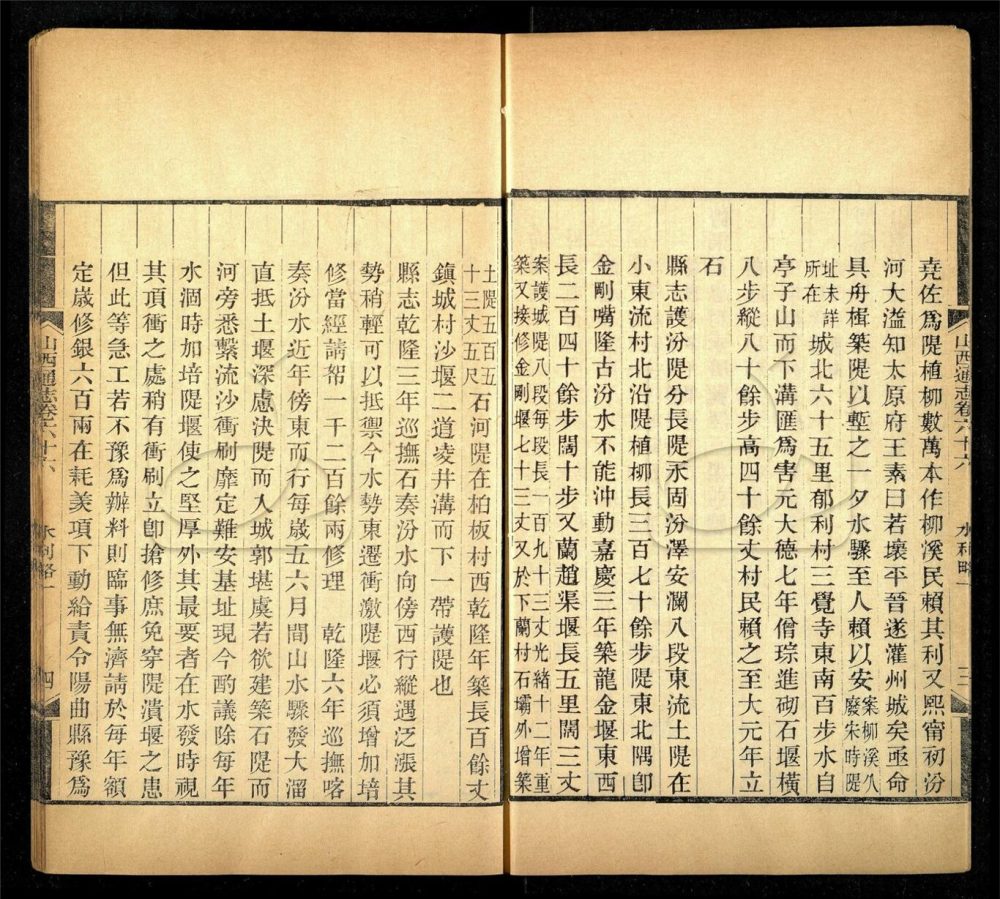 堯佐爲隄植柳數萬本作柳溪民賴其利又熙甯初汾
河大溢知太原府王素曰若壞平晉遂灌州城矣亟命
具舟楫築隄以塹之一夕水驟至人賴以安案柳溪久廢宋時隄
址未詳所在城北六十五里郁利村三覺寺東南百步水自
亭子山而下溝匯爲害元大德七年僧琮進砌石堰橫
八步縱八十餘步高四十餘丈村民賴之至大元年立
石
縣志護汾隄分長隄永固汾澤安瀾八段東流土隄在
小東流村北沿隄植柳長三百七十餘步隄東北隅卽
金剛嘴隆古汾水不能沖動嘉慶三年築龍金堰東西
長二百四十餘步闊十步又蘭趙渠堰長五里闊三丈
案護城隄八段每段長一百九十三丈光緒十二年重
築又接修金剛堰七十三丈又於下蘭村石壩外增築
山西通志卷六十六
水利略一
三
土隄五百五
十三丈五尺石河隄在柏板村西乾隆年築長百餘丈
鎭城村沙堰二道凌井溝而下一帶護隄也
縣志乾隆三年巡撫石奏汾水向傍西行縱遇泛漲其
勢稍輕可以抵禦今水勢東遷衝激隄堰必須增加培
修當經請帑一千二百餘兩修理 乾隆六年巡撫喀
奏汾水近年傍東而行每歲五六月間山水驟發大溜
直抵土堰深慮決隄而入城郭堪虞若欲建築石隄而
河旁悉繫流沙衝刷靡定難安基址現今酌議除每年
水涸時加培隄堰使之堅厚外其最要者在水發時視
其頂衝之處稍有衝刷立卽搶修庶免穿隄潰堰之患
但此等急工若不豫爲辦料則臨事無濟請於每年額
定歲修銀六百兩在耗羨項下動給責令陽曲縣豫爲
山西通志卷六十六
水利略一
四